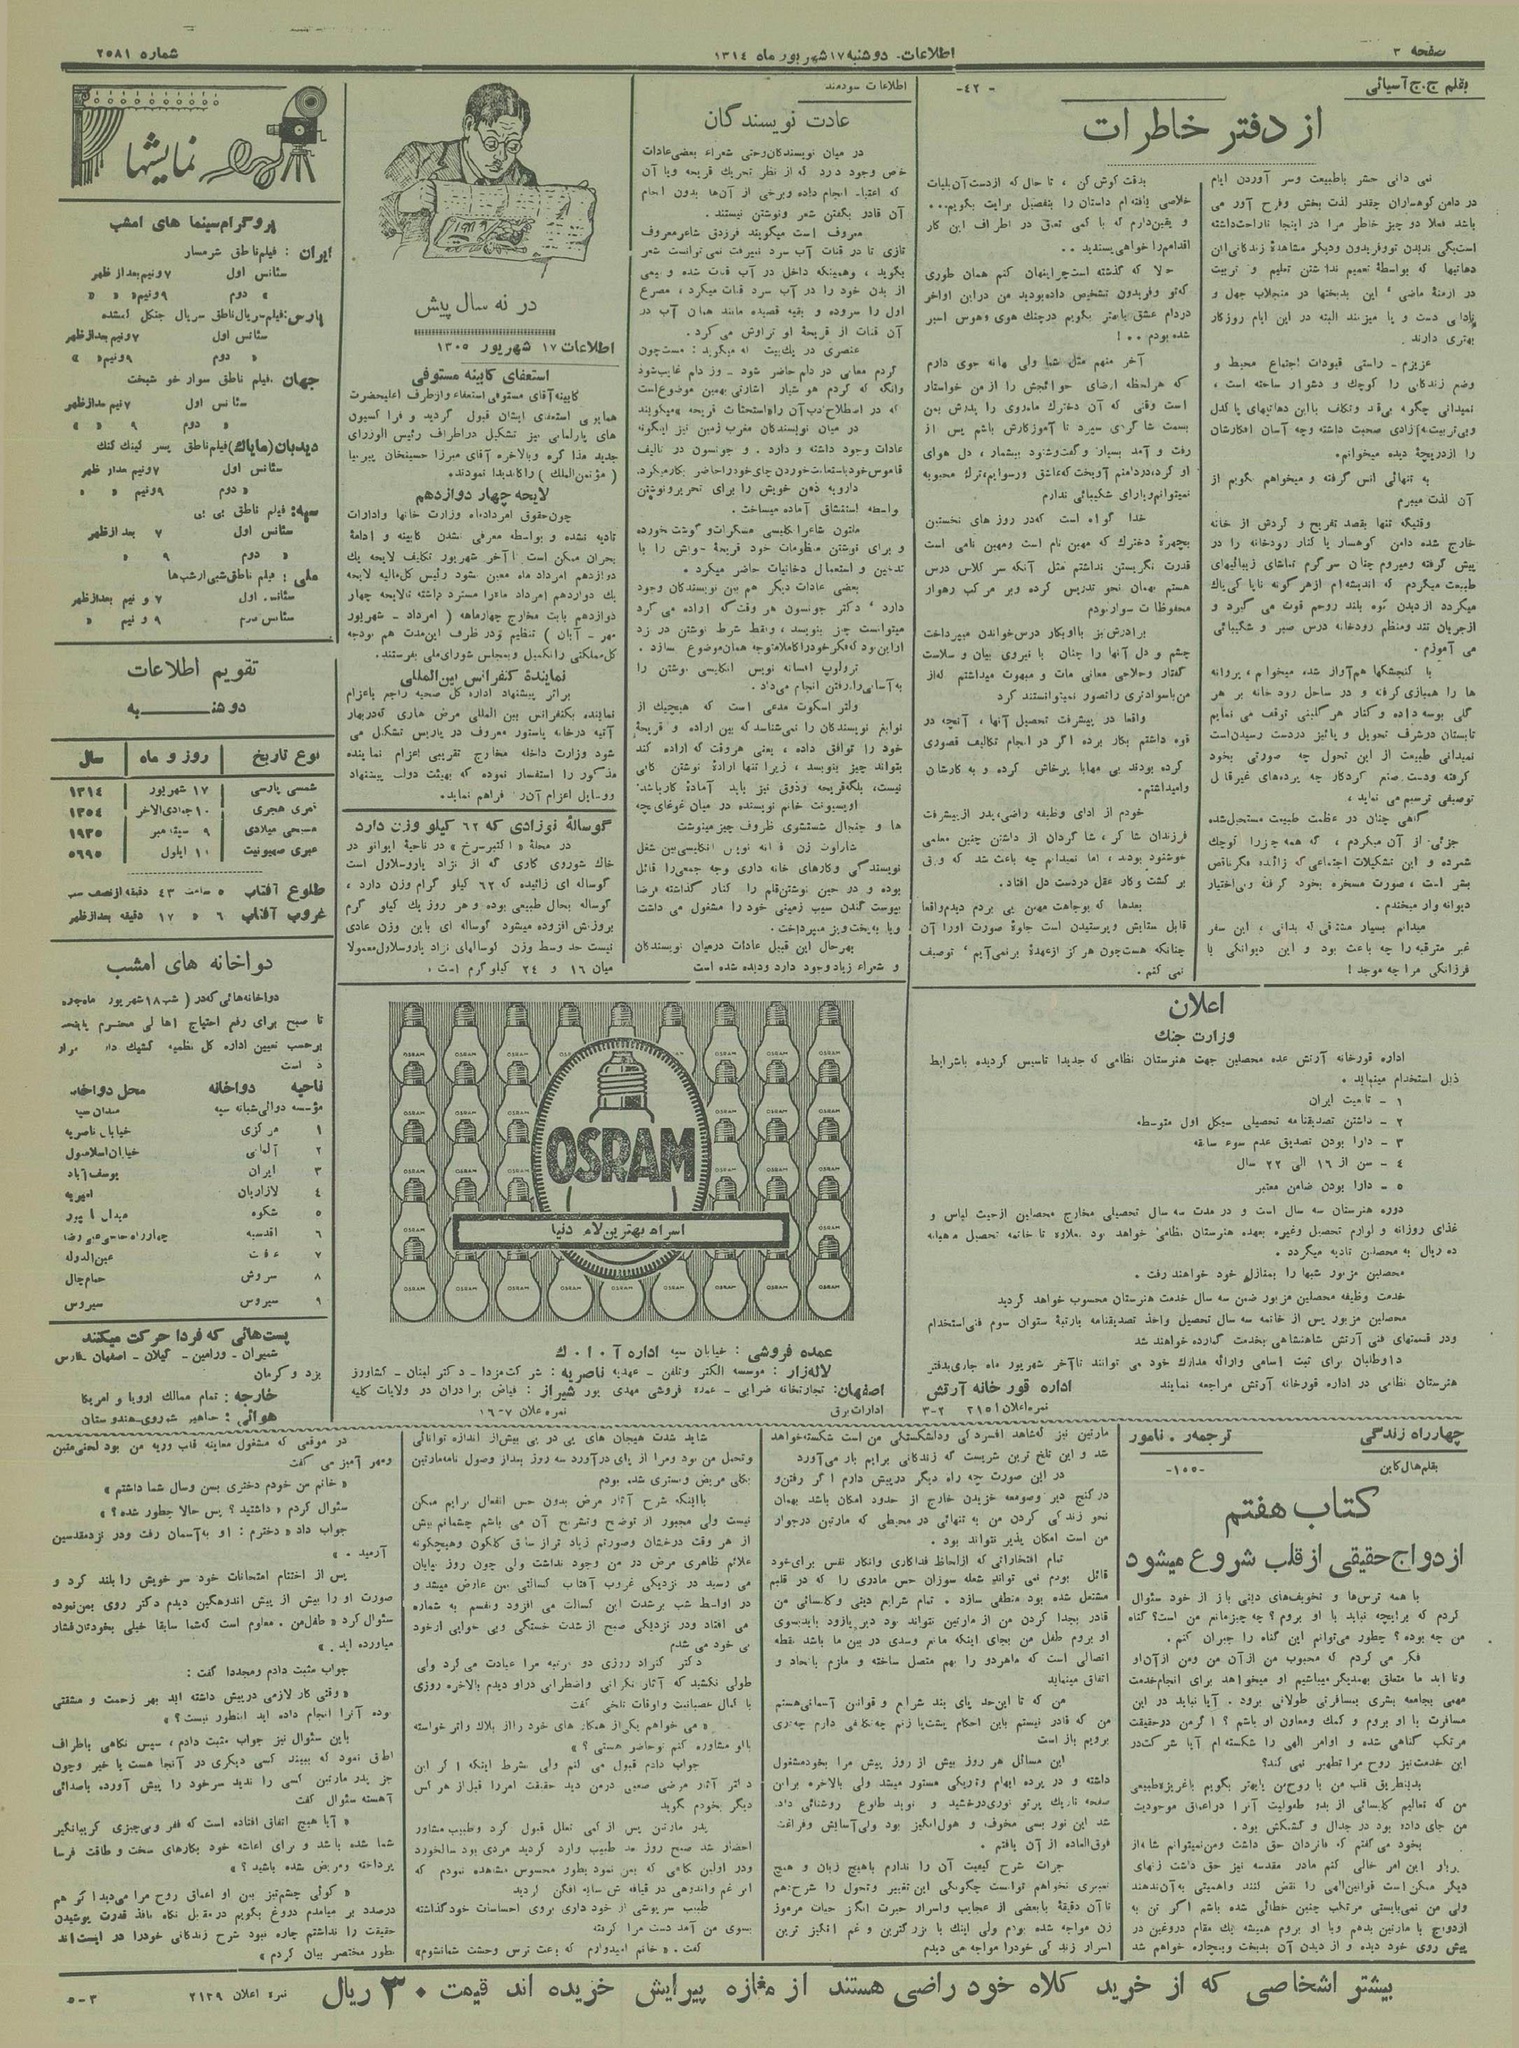 صفحه ۳
اطلاعات- دوشنبه ۱۷ شهریور ماه ۱۳۱٤
شماره ۲۵۸۱
بقلم ج.ج آسیائی
-٤۲-
از دفتر خاطرات
نمی دانی حشر باطبیعت وسر آوردن ایام
در دامن کوهساران چقدر لذت بخش وفرح آور می
باشد فعلا دو چیز خاطر مرا در اینجا ناراحت داشته
است یکی ندیدن تو وفریدون ودیگر مشاهدهٔ زندگانی این
دهاتیها که بواسطهٔ تعمیم نداشتن تعلیم و تربیت
در ازمنهٔ ماضی ، این بدبختها در منجلاب جهل و
نادانی دست و پا میزنند البته در این ایام روزگار
بهتری دارند .
عزیزم - راستی قیودات اجتماع محیط و
وضع زندگانی را کوچک و دشوار ساخته است ،
را ازدریچهٔ دیده میخوانم .
به تنهائی انس گرفته و میخواهم بگویم از
آن لذت میبرم
وقتیکه تنها بقصد تفریح و گردش از خانه
خارج شده دامن کوهسار یا کنار رودخانه را در
پیش گرفته ومیروم چنان سرگرم تماشای زیبائیهای
میگردد ازدیدن کوه بلند روحم قوت می گیرد و
ازجریان تند ومنظم رودخانه درس صبر و شکیبائی
می آموزم .
با گنجشکها هم آواز شده میخوانم ، پروانه
ها را همبازی گرفته و در ساحل رودخانه بر هر
گلی بوسه داده و کنار هر گلبنی توقف می نمایم
تابستان درشرف تحویل و پائیز دردست رسیدن است
نمیدانی طبیعت از این تحول چه صورتی بخود
توصیفی ترسیم می نماید ،
گاهی چنان در عظمت طبیعت مستحیل شده
دیوانه وار میخندم .
فرزانگی مرا چه موجد !
بدقت گوش کن ، تا حال که ازدست آن بلیات
خلاصی یافته ام داستان را بتفصیل برایت بگویم...
و یقین دارم که با کمی تعمق در اطراف این کار
اقدامم را خواهی پسندید ..
حالا که گذشته است چرا پنهان کنم همان طوری
که تو وفریدون تشخیص داده بودید من در این اواخر
دردام عشق یا بهتر بگویم درچنگ هوی و هوس اسیر
شده بودم ..!
که هر لحظه ارضای حوائجش را از من خواستار
است وقتی که آن دخترک ماهروی را پدرش بمن
بسمت شاگردی سپرد تا آموزگارش باشم پس از
رفت و آمد بسیار و گفت وشنود بیشمار ، دل هوای
او کرده دردامنم آویخت که عاشق ورسوایم، ترک محبوبه
نمیتوانم ویارای شکیبائی ندارم
خدا گواه است که در روز های نخستین
بچهرهٔ دخترک که مهین نام است ومهین نامی است
قدرت نگریستن نداشتم مثل آنکه سر کلاس درس
هستم بهمان نحو تدریس کرده و بر مرکب رهوار
محفوظات سوار بودم
چشم و دل آنها را چنان با نیروی بیان و سلاست
واقعا در پیشرفت تحصیل آنها ، آنچه در
قوه داشتم بکار برده اگر در انجام تکالیف قصوری
کرده بودند بی مهابا پرخاش کرده و به کارشان
وامیداشتم .
خودم از ادای وظیفه راضی، پدر از پیشرفت
فرزندان شاکر ، شاگردان از داشتن چنین معلمی
بر گشت و کار عقل دردست دل افتاد .
بعدها که بوجاهت مهین پی بردم دیدم واقعا
قابل ستایش و پرستیدن است جلوهٔ صورت او را آن
چنانکه هست چون هرگز ازعهدهٔ برنمی آیم ، توصیف
نمی کنم .
اطلاعات سودمند
عادت نویسندگان
در میان نویسندگان وحتی شعراء بعضی عادات
خاص وجود دارد که از نظر تحریک قریحه ویا آن
که اعتیاد انجام داده وبرخی از آن‌ها بدون انجام
آن قادر بگفتن شعر ونوشتن نیستند .
معروف است میگویند فرزدق شاعر معروف
تازی تا در قنات آب سرد نمیرفت نمی توانست شعر
بگوید ، وهمینکه داخل در آب قنات شده و نیمی
از بدن خود را در آب سرد قنات میکرد ، مصرع
اول را سروده و بقیه قصیده مانند همان آب در
آن قنات از قریحهٔ او تراوش می کرد .
در میان نویسندگان مغرب زمین نیز اینگونه
عادات وجود داشته و دارد . و جونسون در تالیف
قاموس خود با استعانت خوردن چای خود را حاضر بکار میکرد.
دارویه ذهن خویش را برای تحریر ونوشتن
بواسطه استنشاق آماده میساخت .
ملتون شاعر انگلیسی مسکرات و گوشت خورده
و برای نوشتن منظومات خود قریحهٔ خویش را با
تدخین و استعمال دخانیات حاضر میکرد .
بعضی عادات دیگر هم بین نویسندگان وجود
دارد ، دکتر جونسون هر وقت که اراده می کرد
ترولوپ افسانه نویس انگلیسی نوشتن را
به آسانی راه رفتن انجام میداد .
ولتر اسکوت مدعی است که هیچیک از
نوابغ نویسندگان را نمی شناسد که بین اراده و قریحهٔ
خود را توافق داده ، یعنی هر وقت که اراده کند
بتواند چیز بنویسد ، زیرا تنها ارادهٔ نوشتن کافی
نیست، بلکه قریحه وذوق نیز باید آمادهٔ کار باشد.
اویسیونت خانم نویسنده در میان غوغای بچه
ها و جنجال شستشوی ظروف چیز مینوشت
نویسندگی وکارهای خانه داری وجه جمعی را قائل
بوده و در حین نوشتن قلم را کنار گذاشته فرضا
بپوست کندن سیب زمینی خود را مشغول می داشت
ویا به پخت وپز میپرداخت .
بهرحال این قبیل عادات درمیان نویسندگان
و شعراء زیاد وجود دارد ودیده شده است
در نه سال پیش
اطلاعات ۱۷ شهریور ۱۳۰۵
استعفای کابینه مستوفی
کابینه آقای مستوفی استعفاء واز طرف اعلیحضرت
همایونی استعفای ایشان قبول گردید و فراکسیون
های پارلمانی نیز تشکیل در اطراف رئیس الوزرای
جدید مذاکره وبالاخره آقای میرزا حسینخان پیرنیا
( مؤتمن الملک ) را کاندیدا نمودند.
لایحه چهار دوازدهم
چون حقوق امرداد ماه وزارت خانها وادارات
تادیه نشده و بواسطه معرفی نشدن کابینه و ادامهٔ
بحران ممکن است تا آخر شهریور تکلیف لایحه یک
دوازدهم امرداد ماه معین نشود رئیس کل مالیه لایحه
یک دوازدهم امرداد ماه را مسترد داشته تا لایحه چهار
دوازدهم بابت مخارج چهارماهه ( امرداد - شهریور
مهر - آبان ) تنظیم ودر ظرف این مدت هم بودجه
کل مملکتی را تکمیل وبمجلس شورای ملی بفرستند.
نمایندهٔ کنفرانس بین المللی
بر اثر پیشنهاد اداره کل صحیه راجع باعزام
نماینده بکنفرانس بین المللی مرض هاری که در بهار
آتیه درخانه پاستور معروف در پاریس تشکیل می
شود وزارت داخله مخارج تقریبی اعزام نماینده
مذکور را استفسار نموده که بهیئت دولت پیشنهاد
ووسایل اعزام آنرا فراهم نماید.
گوسالهٔ نوزادی که ٦۲ کیلو وزن دارد
در محلهٔ « اکتبر سرخ » در ناحیهٔ ایوانو در
خاک شوروی گاوی که از نژاد یاروسلاول است
گوساله ای زائیده که ٦۲ کیلو گرم وزن دارد ،
گوساله بحال طبیعی بوده و هر روز یک کیلو گرم
بروزنش افزوده میشود گوساله ای باین وزن عادی
نیست حد وسط وزن گوسالهای نژاد یاروسلاول معمولا
میان ۱٦ و ۲٤ کیلو گرم است .
نمایشها
پروگرام سینما های امشب
ایران : فیلم ناطق شرمسار
سئانس اول ۷ ونیم بعد از ظهر
» دوم ۹ ونیم » » »
پارس: فیلم سریال ناطق سریال جنگل گمشده
سئانس اول ۷ ونیم بعد از ظهر
» دوم ۹ ونیم » »
جهان ، فیلم ناطق سوار خوشبخت
سئانس اول ۷ ونیم بعد از ظهر
» دوم ۹ » »
دیدبان (مایاک) فیلم ناطق پسر کینگ کنگ
سئانس اول ۷ ونیم بعد از ظهر
» دوم ۹ ونیم » »
سپه: فیلم ناطق بی بی
سئانس اول ۷ بعد از ظهر
» دوم ۹ »
ملی : فیلم ناطق شبی از شب‌ها
سئانس اول ۷ و نیم بعد از ظهر
سئانس دوم ۹ و نیم »
تقویم اطلاعات
دوشنبه
نوع تاریخ روز و ماه سال
شمسی پارسی ۱۷ شهریور ۱۳۱٤
قمری هجری ۱۰ جمادی الاخر ۱۳٥٤
مسیحی میلادی ۹ سپتامبر ۱۹۳٥
عبری صهیونیت ۱۰ ایلول ٥٦۹٥
طلوع آفتاب ٥ ساعت ٤۳ دقیقه از نصف شب
غروب آفتاب ٦ » ۱۷ دقیقه بعد از ظهر
دواخانه های امشب
دواخانه‌هائی که در ( شب ۱۸ شهریور ماه جاری
تا صبح برای رفع احتیاج اهالی محترم پایتخت
ناحیه دواخانه محل دواخانه
مؤسسه دوائی شبانه سپه میدان سپه
۱ مرکزی خیابان ناصریه
۲ آلمانی خیابان اسلامبول
۳ ایران یوسف آباد
٤ لازاریان امیریه
٥ شکوه
٦ اقدسیه
۷ عفت عین الدوله
۸ سروش حمام چال
۹ سیروس سیروس
پست‌هائی که فردا حرکت میکنند
شمیران - ورامین - گیلان - اصفهان - فارس
یزد و کرمان
خارجه : تمام ممالک اروپا و امریکا
هوائی : جماهیر شوروی - هندوستان
اعلان
وزارت جنگ
اداره قورخانه آرتش عده محصلین جهت هنرستان نظامی که جدیدا تاسیس گردیده باشرایط
ذیل استخدام مینماید .
۱ - تابعیت ایران
۲ - داشتن تصدیقنامه تحصیلی سیکل اول متوسطه
۳ - دارا بودن تصدیق عدم سوء سابقه
٤ - سن از ۱٦ الی ۲۲ سال
٥ - دارا بودن ضامن معتبر
دوره هنرستان سه سال است و در مدت سه سال تحصیلی مخارج محصلین ازحیث لباس و
غذای روزانه و لوازم تحصیل وغیره بعهده هنرستان نظامی خواهد بود بعلاوه تا خاتمه تحصیل ماهیانه
ده ریال به محصلین تادیه میگردد .
محصلین مزبور شبها را بمنازل خود خواهند رفت .
خدمت وظیفه محصلین مزبور ضمن سه سال خدمت هنرستان محسوب خواهد گردید
محصلین مزبور پس از خاتمه سه سال تحصیل واخذ تصدیقنامه بارتبهٔ ستوان سوم فنی استخدام
ودر قسمتهای فنی آرتش شاهنشاهی بخدمت گمارده خواهند شد
داوطلبان برای ثبت اسامی وارائه مدارک خود می توانند تا آخر شهریور ماه جاری بدفتر
هنرستان نظامی در اداره قورخانه آرتش مراجعه نمایند
اداره قورخانه آرتش
نمره اعلان ۲۱٥۱ ۳-۲
OSRAM
اسرام بهترین لامپ دنیا
عمده فروشی : خیابان سپه اداره آ ا گ
لاله زار : موسسه الکتر وتلفن - عهدیه ناصریه : شرکت مزدا - دکتر لبنان - کشاورز
اصفهان: تجارتخانه ضرابی - عمده فروشی مهدی پور شیراز : فیاض برادران در ولایات کلیه
ادارات برق نمره اعلان ۷-۱٦
چهارراه زندگی ترجمه ر. نامور
بقلم هال کاین
-۱۰۰-
کتاب هفتم
ازدواج حقیقی از قلب شروع میشود
با همه ترس‌ها و تخویف‌های دینی باز از خود سئوال
کردم که برایچه نباید با او بروم ؟ چه چیز مانع من است؟ گناه
من چه بوده ؟ چطور می‌توانم این گناه را جبران کنم .
فکر می کردم که محبوب من از آن من ومن از آن او
وتا ابد ما متعلق بهمدیگر میباشیم او میخواهد برای انجام خدمت
مهمی بجامعه بشری بمسافرتی طولانی برود . آیا نباید در این
مسافرت با او بروم و کمک ومعاون او باشم ؟ اگر من درحقیقت
مرتکب گناهی شده و اوامر الهی را شکسته ام آیا شرکت در
این خدمت نیز روح مرا تطهیر نمی کند؟
بدینطریق قلب من با روح من یا بهتر بگویم باغریزه طبیعی
من که تعالیم کلیسائی از بدو طفولیت آنرا در اعماق موجودیت
من جای داده بود در جدال و کشمکش بود .
دیگر ممکن است قوانین الهی را نقض کنند واهمیتی به آن ندهند
ولی من نمی بایستی مرتکب چنین خطائی شده باشم اگر تن به
ازدواج با مارتین بدهم ویا او بروم همیشه یک مقام دروغین در
پیش روی خود دیده و از دیدن آن بدبخت وبیچاره خواهم شد
مارتین نیز که شاهد افسردگی ودلشکستگی من است شکسته خواهد
شد و این تلخ ترین شربیست که زندگانی برایم بار می آورد
در این صورت چه راه دیگر در پیش دارم اگر رفتن و
درکنج دیر وصومعه خزیدن خارج از حدود امکان باشد بهمان
نحو زندگی کردن من به تنهائی در محیطی که مارتین درجوار
من است امکان پذیر نتواند بود .
تمام افتخاراتی که ازلحاظ فداکاری وانکار نفس برای خود
قائل بودم نمی تواند شعله سوزان حس مادری را که در قلبم
مشتعل شده بود منطفی سازد . تمام شرایع دینی وکلیسائی من
قادر بجدا کردن من از مارتین نتواند بود دیر یازود بایدبسوی
او بروم طفل من بجای اینکه مانع وسدی در بین ما باشد نقطه
اتصالی است که ماهردو را بهم متصل ساخته و ملزم باتحاد و
اتفاق مینماید
من که تا این حد پای بند شرایع و قوانین آسمانی هستم
من که قادر نیستم باین احکام پشت پا زنم چه تکلفی دارم چه دری
برویم باز است
این مسائل هر روز بیش از روز پیش مرا بخود مشغول
داشته و در پرده ابهام وتاریکی مستور میشد ولی بالاخره براین
صفحه تاریک پرتو نوری درخشید و نوید طلوع روشنائی داد.
شد این نور بسی مخوف و هول انگیز بود ولی آسایش وفراغت
فوق العاده از آن یافتم .
جرات شرح کیفیت آن را ندارم باهیچ زبان و هیچ
تعبیری نخواهم توانست چگونگی این تغییر وتحول را شرح دهم
تا آن دقیقه با بعضی از عجایب واسرار حیرت انگیز حیات مرموز
زن مواجه شده بودم ولی اینک با بزرگترین و غم انگیز ترین
اسرار زندگی خود را مواجه می دیدم
شاید شدت هیجان های پی در پی بیش از اندازه توانائی
وتحمل من بود ومرا از پای درآورد سه روز بعد از وصول نامه مارتین
بکلی مریض وبستری شده بودم
با اینکه شرح آثار مرض بدون حس انفعال برایم ممکن
نیست ولی مجبور از توضیح وتشریح آن می باشم چشمانم بیش
از هر وقت درخشان وصورتم زیاد تر از سابق گلگون وهیچگونه
علائم ظاهری مرض در من وجود نداشت ولی چون روز بپایان
می رسید در نزدیکی غروب آفتاب کسالتی بمن عارض میشد و
در اواسط شب بر شدت این کسالت می افزود ونفسم به شماره
می افتاد ودر نزدیکی صبح از شدت خستگی وبی خوابی از خود
بی خود می شدم
دکتر کنراد روزی دو مرتبه مرا عیادت می کرد ولی
طولی نکشید که آثار نگرانی واضطرابی در او دیدم بالاخره روزی
با کمال عصبانیت واوقات تلخی گفت
« می خواهم یکی از همکار های خود را از بلاک واتر خواسته
با او مشاوره کنم تو حاضر هستی ؟ »
جواب دادم قبول می کنم ولی بشرط اینکه اگر این
دکتر آثار مرض صعبی درمن دید حقیقت امر را قبل از هر کس
دیگر بخودم بگوید
پدر مارتین پس از کمی تعلل قبول کرد وطبیب مشاور
احضار شد صبح روز بعد طبیب وارد گردید مردی بود سالخورد
ودر اولین نگاهی که بمن نمود بطور محسوس مشاهده نمودم که
ابر غم واندوهی در قیافه اش سایه افکن گردید
طبیب سرپوشی از خود داری بروی احساسات خود گذاشته
بسوی من آمد دست مرا گرفته
گفت . « خانم امیدوارم که باعث ترس وحشت شما نشوم »
در موقعی که مشغول معاینه قلب وریه من بود لحنی متین
ومهر آمیز می گفت
« خانم من خودم دختری بسن وسال شما داشتم »
سئوال کردم « داشتید ؟ پس حالا چطور شده ؟ »
جواب داد « دخترم : او به آسمان رفت ودر نزد مقدسین
آرمید . »
پس از اختتام امتحانات خود سر خویش را بلند کرد و
صورت او را بیش از پیش اندوهگین دیدم دکتر روی بمن نموده
سئوال کرد « طفل من . معلوم است که شما سابقا خیلی بخودتان فشار
میاورده اید . »
جواب مثبت دادم ومجددا گفت :
« وقتی کار لازمی در پیش داشته اید بهر زحمت و مشقتی
بوده آنرا انجام داده اید اینطور نیست ؟ »
باین سئوال نیز جواب مثبت دادم ، سپس نگاهی باطراف
اطاق نمود که ببیند کسی دیگری در آنجا هست یا خیر وچون
جز پدر مارتین کسی را ندید سر خود را پیش آورده باصدائی
آهسته سئوال کرد
« آیا هیچ اتفاق افتاده است که فقر وبی چیزی گریبانگیر
شما شده باشد و برای اعاشه خود بکارهای سخت و طاقت فرسا
پرداخته ومریض شده باشید ؟ »
« گوئی چشم تیز بین او اعماق روح مرا می دید اگر هم
درصدد بر میامدم دروغ بگویم در مقابل نگاه نافذ قدرت پوشیدن
حقیقت را نداشتم چاره نبود شرح زندگانی خود را در ایست اند
بطور مختصر بیان کردم »
بیشتر اشخاصی که از خرید کلاه خود راضی هستند از مغازه پیرایش خریده اند قیمت ۳۰ ریال
نمره اعلان ۲۱۲۹ ۳-٥